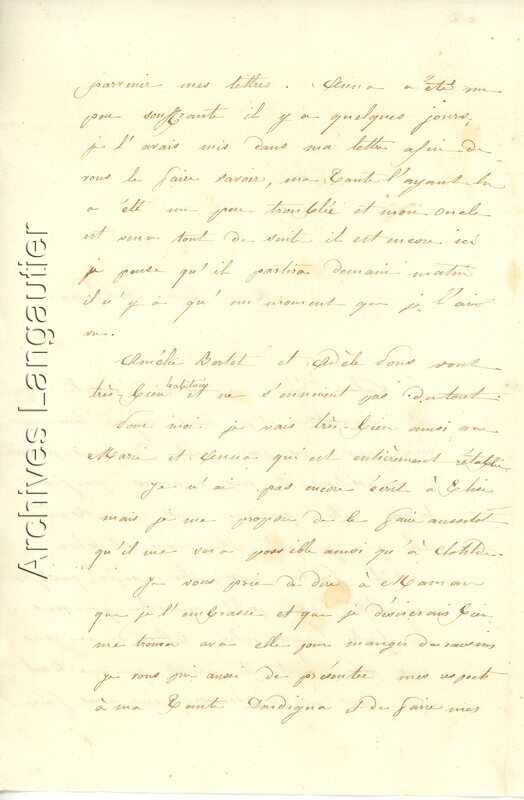 parvenir mes lettres. Anna a été un
peu souffrante il y a quelques jours,
je l'avais mis dans ma lettre afin de
vous le faire savoir, ma Tante l'ayant lu
a été un peu troublée et mon oncle
est venu tout de suite il est encore ici
je pense qu'il partira demain matin
il n'y a qu'un moment que je l'ai
vu.
Amélie Bertet et Adèle Sons vont
très-bien habituées et ne s'ennuient pas du tout
pour moi je vais très-bien ainsi que
Marie et Anna qui est entièrement rétablie
Je n'ai pas encore écrit à Elise
mais je me propose de le faire aussitôt
qu'il me sera possible ainsi qu'à Clotilde.
Je vous prie de dire à Maman
que je l'embrasse et que je désirerais bien
me trouver avec elle pour manger des raisins
je vous prie aussi de présenter mes respects
à ma Tante Dardigna et de faire mes
Archives Langautier